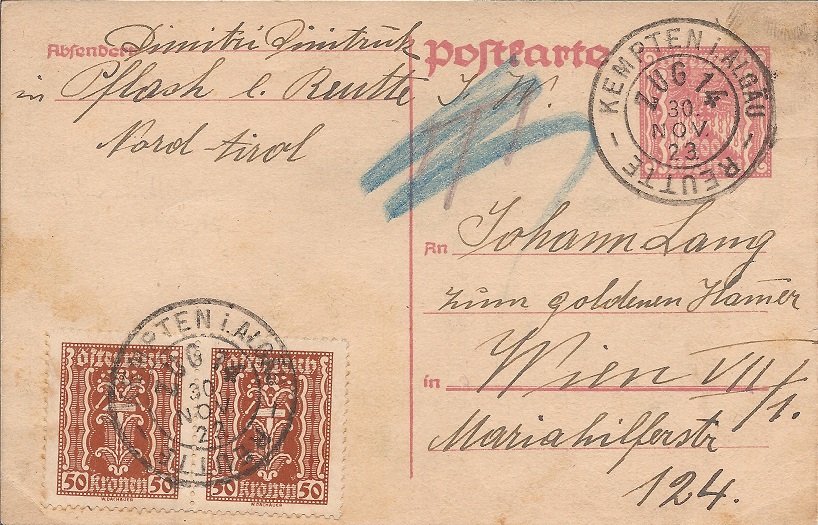 Absender: Dimitri Dimitruk
in Pflach b. Reutte
Nord-tirol
Postkarte
KEMPTEN i. ALGÄU - REUTTE -
ZUG 14
30
NOV
23
An Johann Lang
zum goldenen Hamer
in Wien VII/1.
Mariahilferstr
124.
KEMPTEN i. ALGÄU
ZUG 14
30
NOV
REUTTE
50 Kronen 50
50 Kronen 50
W.DACHAUER
W.DACHAUER